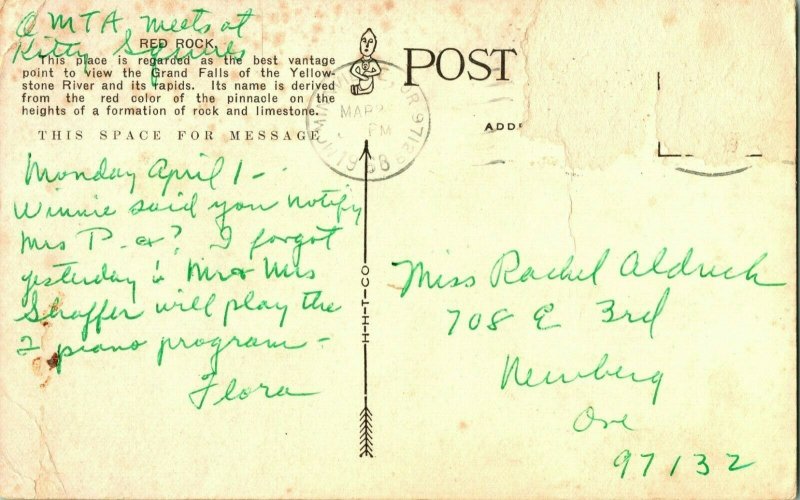 OMTA meets at
Kitty Squires
RED ROCK.
This place is regarded as the best vantage
point to view the Grand Falls of the Yellow-
stone River and its rapids. Its name is derived
from the red color of the pinnacle on the
heights of a formation of rock and limestone.
THIS SPACE FOR MESSAGE
Monday April 1-
Winnie said you notify
Mrs P. & ? I forgot
yesterday! Mr & Mrs
Shaffer will play the
2 piano program -
Flora
H-H-T-CO
POST
ADD
MAR
PM
1968
OR 9712
Miss Rachel Aldrich
708 E 3rd
Newberg
Ore
97132